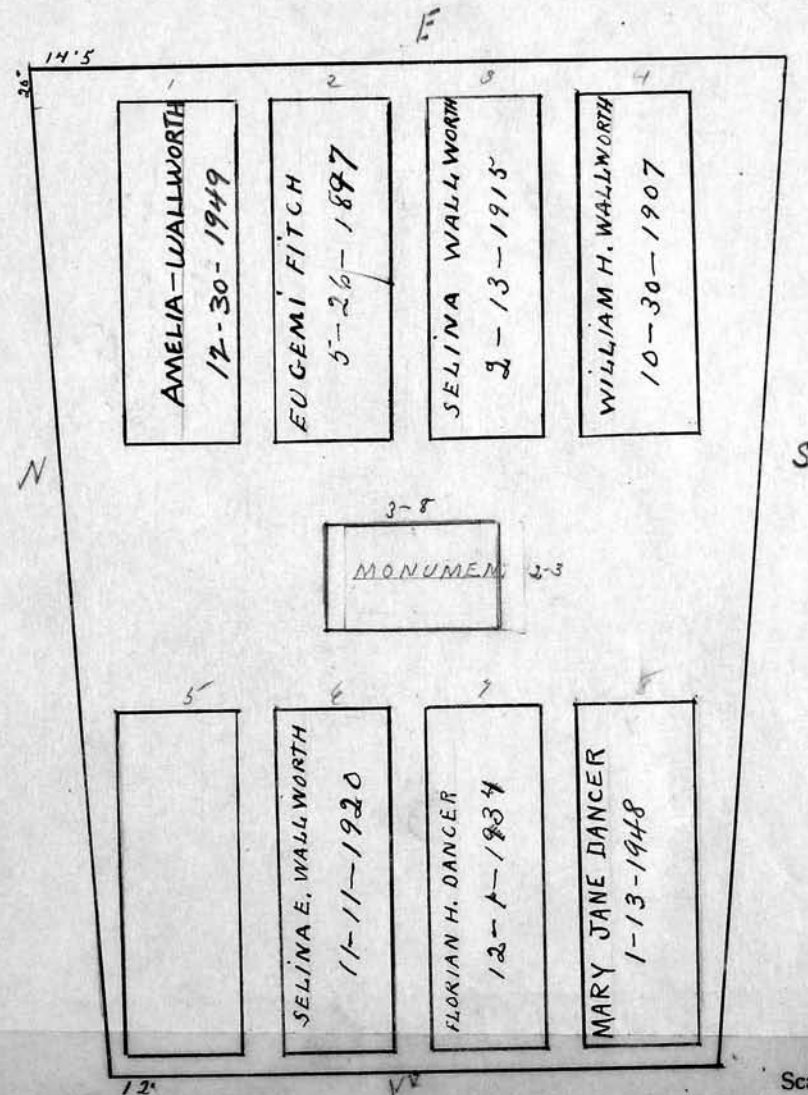 E
14'5
20"
1
2
3
4
AMELIA-WALLWORTH
12-30-1949
EUGEMI FITCH
5-26-1897
SELINA WALLWORTH
2-13-1915
WILLIAM H. WALLWORTH
10-30-1907
N
S
3-8
MONUMEN
2-3
5
6
7
8
SELINA E. WALLWORTH
11-11-1920
FLORIAN H. DANCER
12-1-1934
MARY JANE DANCER
1-13-1948
12'
W
Sca